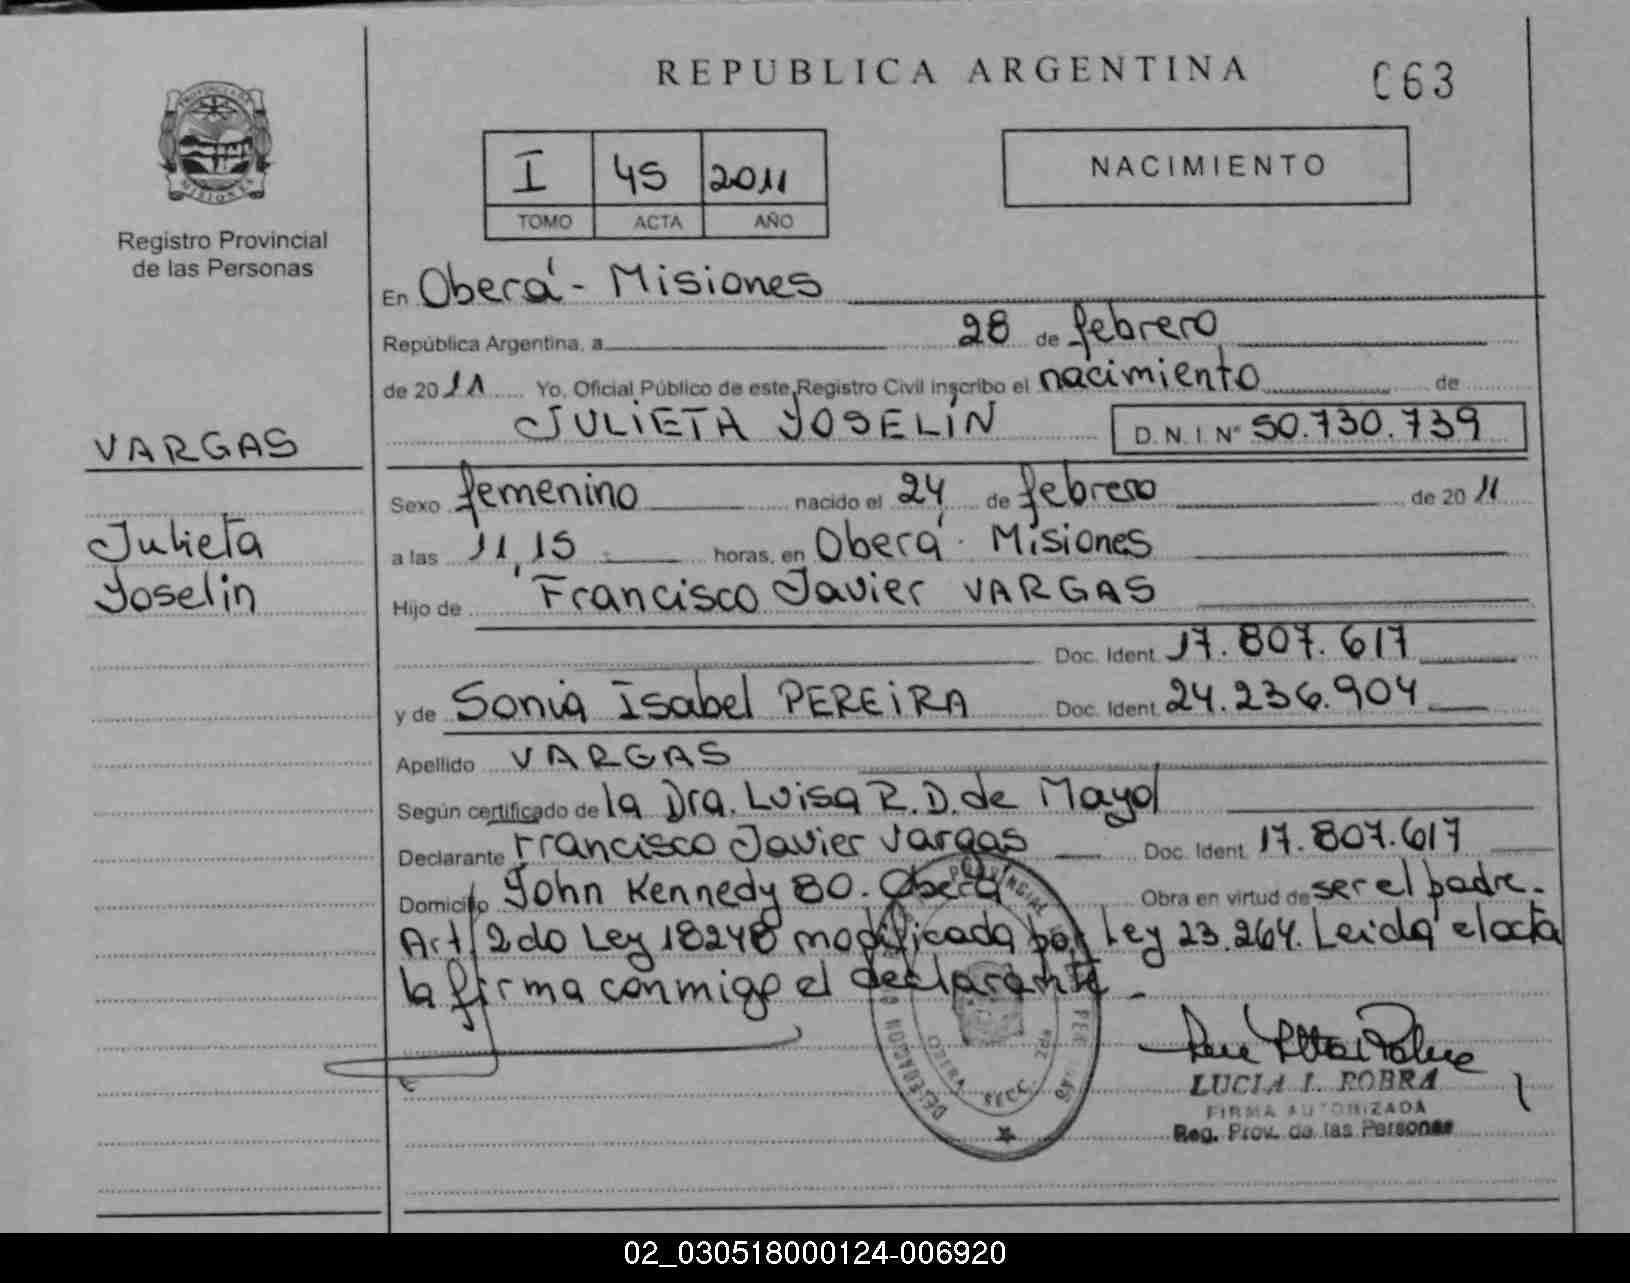 REPUBLICA ARGENTINA
C63
PROVINCIA DE MISIONES
Registro Provincial
de las Personas
I 45 2011
TOMO ACTA AÑO
NACIMIENTO
En Oberá - Misiones
República Argentina, a 28 de febrero
de 2011 Yo, Oficial Público de este Registro Civil inscribo el nacimiento de
JULIETA YOSELÍN D.N.I. N° 50.730.739
VARGAS
Julieta
Yoselin
Sexo femenino nacido el 24 de febrero de 2011
a las 11,15 horas, en Oberá - Misiones
Hijo de Francisco Javier VARGAS
Doc. Ident. 17.807.617
y de Sonia Isabel PEREIRA Doc. Ident. 24.236.904
Apellido VARGAS
Según certificado de la Dra. Luisa R. D. de Mayol
Declarante Francisco Javier Vargas Doc. Ident. 17.807.617
Domicilio John Kennedy 80. Oberá Obra en virtud de ser el padre.
Art 2do Ley 18248 modificada por Ley 23.264. Leida el acta
la firma conmigo el declarante -
LUCIA I. ROBRA
FIRMA AUTORIZADA
Reg. Prov. de las Personas
02_030518000124-006920